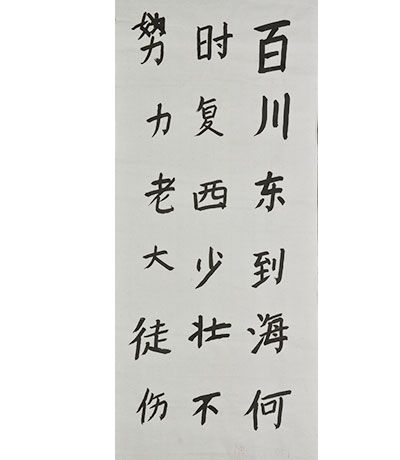 百川东到海何
时复西少壮不
努力老大徒伤